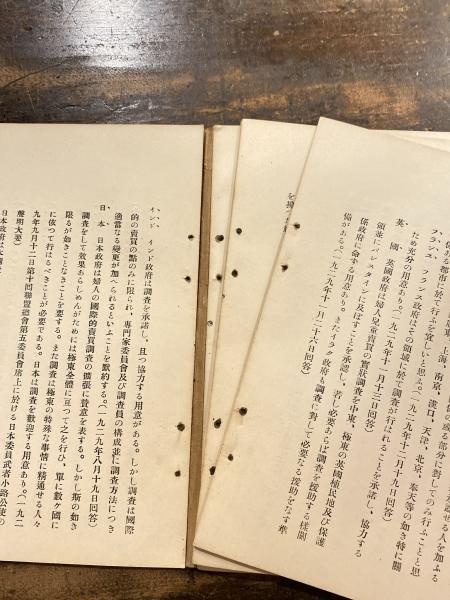 係ある都市に於て行ふを宜しいと思ふ。
フランス　フランス政府はその領域に於て調査が行はれることを承諾し、協力する
ため充分の用意あり。(一九二九年十二月十九日回答)
英　國　英國政府は婦人兒童賣買の實地調査を中東、極東の英國植民地及び保護
領並にパレスタインに及ぼすことを承認し、若し必要あらば調査を援助する樣關
係政府に命ずる用意あり。またイラク政府も調査に對して必要なる援助をなす準
備がある。(一九二九年十一月二十六日回答)
インド　インド政府は調査を承諾し、且つ協力する用意がある。しかし調査は國際
的の賣買の點のみに限られ、專門家委員會及び調査員の構成並に調査方法につき
適當なる變更が加へられるといふことを默約する。(一九二九年八月十九日回答)
日　本　日本政府は婦人の國際的賣買調査の擴張に賛意を表する。しかし斯の如き
調査をして效果あらしめんがためには極東全體に亘つて之を行ひ、單に數ヶ國に
限るが如きことなきことを要する。また調査は極東の特殊な事情に精通せる人々
に依つて行はるべきことが必要である。日本は調査を歡迎する用意あり。(一九二
九年九月十二日第十回聯盟總會第五委員會席上に於ける日本委員武者小路公使の
聲明大要)
日本政府は